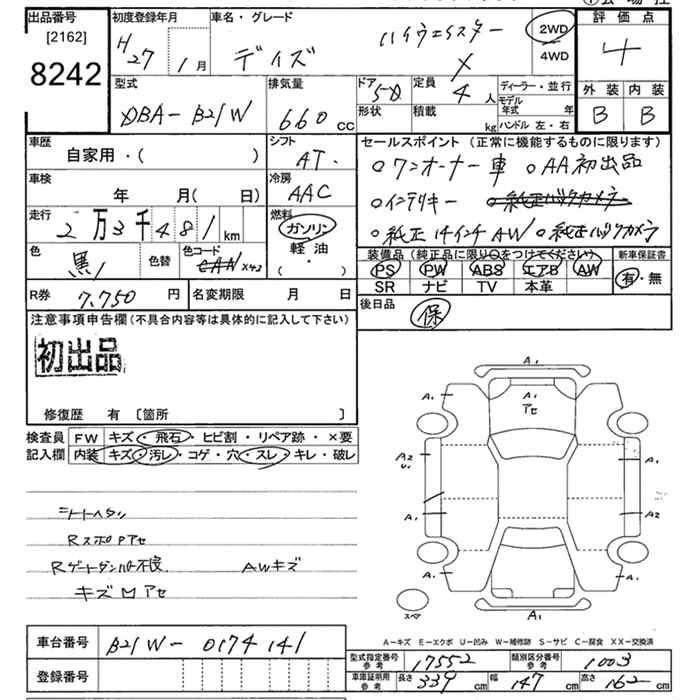 出品番号 初度登録年月 車名・グレード 評価点
[2162] H27/1月 デイズ ハイウェイスター X 2WD 4WD 4
8242
型式 排気量 ドア 5D 定員 4人 ディーラー・並行 外装 内装
DBA-B21W 660cc 形状 積載 kg モデル年式 年 B B
ハンドル 左・右
車歴 シフト セールスポイント (正常に機能するものに限ります)
自家用・( ) AT. ○ワンオーナー車 ○AA初出品
車検 冷房 ○インテリキー ○純正バックカメラ
年 月(日) AAC
走行 燃料 ○純正14インチAW ○純正バックカメラ
2万3千481km ガソリン
軽油
・( )
色 黒 色替 色コード 装備品 (純正品に限り○をつけてください) 新車保証書
PS PW ABS エアB AW 有・無
SR ナビ TV 本革
R券 7,750円 名変期限 月 日 後日品 保
注意事項申告欄 (不具合内容等は具体的に記入して下さい)
初出品
修復歴 有 [箇所 ]
検査員 FW キズ・飛石・ヒビ割・リペア跡・×要
記入欄 内装 キズ・汚レ・コゲ・穴・スレ・キレ・破レ
A1
A1 A1
アセ
A2 A1
A1 A2
シートヘタリ
RスポPアセ
Rゲートダンパー不良 AWキズ
キズロアセ
スペ
A1
A-キズ E-エクボ U-凹み W-補修跡 S-サビ C-腐食 XX-交換済
車台番号 B21W-0174141 型式指定番号 参考 17552 類別区分番号 参考 1003
登録番号 車庫証明用 参考 長さ 339cm 幅 147cm 高さ 162cm